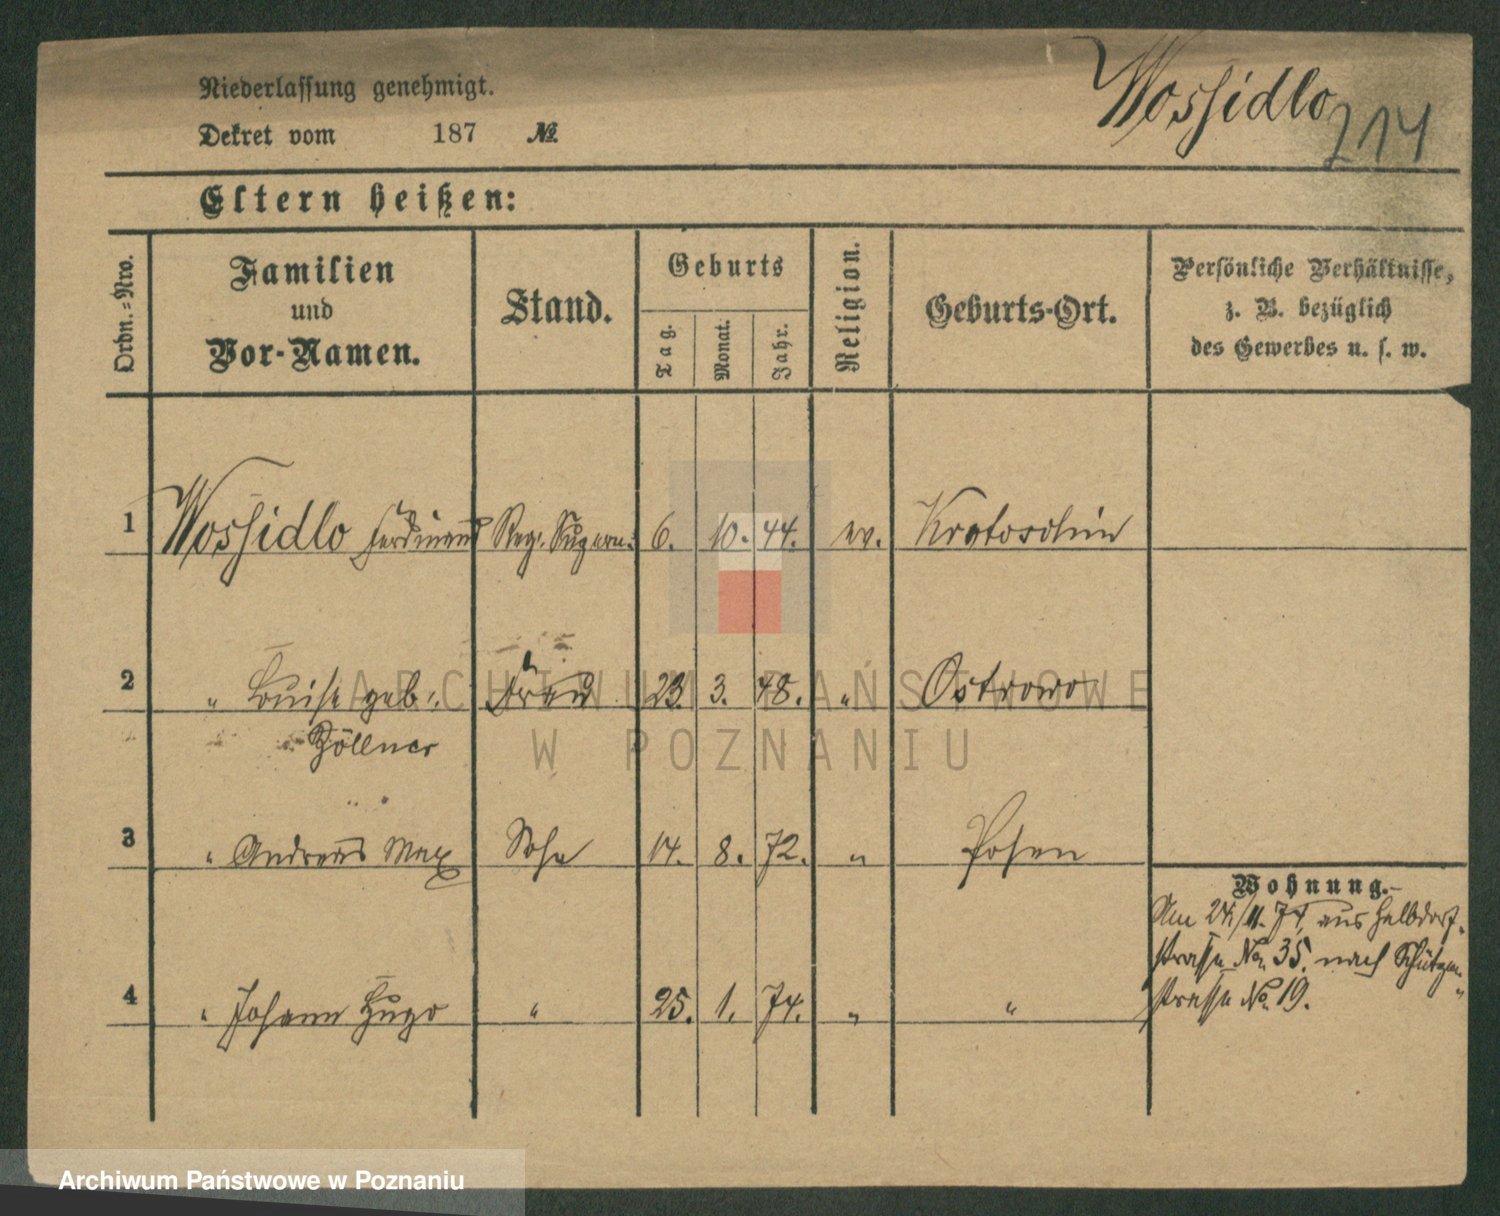 Niederlassung genehmigt.
Wossidlo
214
Dekret vom 187 №
Eltern heißen:
Ordn.-Nro.
Familien
und
Vor-Namen.
Stand.
Geburts
Tag.
Monat.
Jahr.
Religion.
Geburts-Ort.
Persönliche Verhältnisse,
z. B. bezüglich
des Gewerbes u. s. w.
1 Wossidlo Ferdinand Reg. Supern: 6. 10. 44. ev. Krotoschin
2 " Louise geb: Frau 23. 3. 48. " Ostrowo
Zöllner
3 " Andreas Max Sohn 14. 8. 72. " Posen
4 " Johann Hugo " 25. 1. 74. " "
Wohnung.
Am 24/11. 74, aus Halbdorf-
strasse No. 35. nach Schützen-
strasse No. 19.
ARCHIWUM PAŃSTWOWE
W POZNANIU
Archiwum Państwowe w Poznaniu